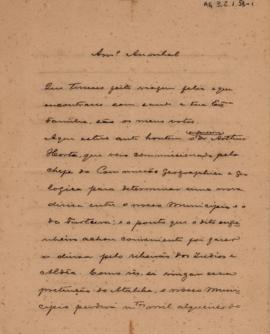 Am.º Annibal
Que tenhas feito viagem feliz e que
encontrasses com saude a tua Ex.ma
familia, são os meus votos.
Aqui esteve ante hontem o engenheiro Dr Arthur
Horta, que veio commissionado pelo
chefe da Commissão Geographica e Ge
ologica para determinar uma nova
divisa entre o nosso Municipio e o
de; e o ponto que o dito enge
nheiro achou conveniente foi fazer
a divisa pelo ribeirão dos Indios e
Aldêa. Como vês, si vingar essa
pretenção do, o nosso Muni
cipio perderá mil alqueires de